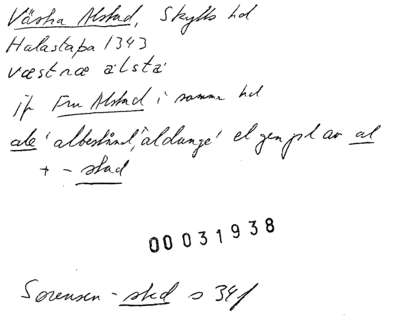 Västra Alstad, Skytts hd
Halastapa 1343
væstræ alsta
jfr Fru Alstad i samma hd
ale 'albestånd, äldunge' el gen pl av al
+ -stad
00031938
Sørensen -sted s 34f